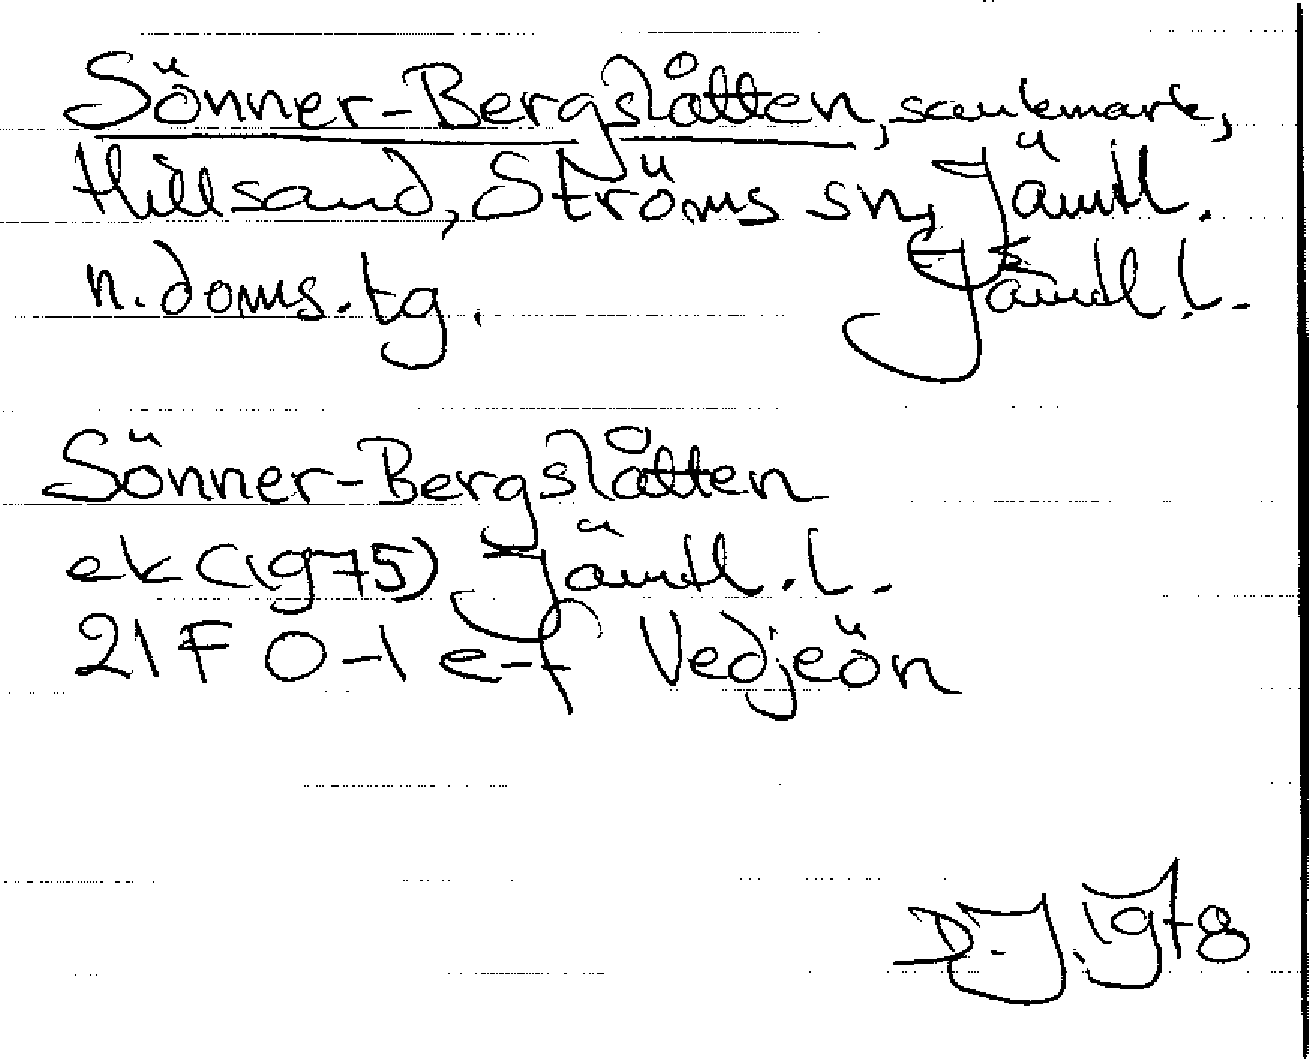 Sönner-Bergslåtten, sankmark,
Hillsand, Ströms sn, Jämtl.
n. doms. tg. Jämtl. l.
Sönner-Bergslåtten
ek (1975) Jämtl. l.
21 F 0-1 e-f Vedjeön
D. J. 1978